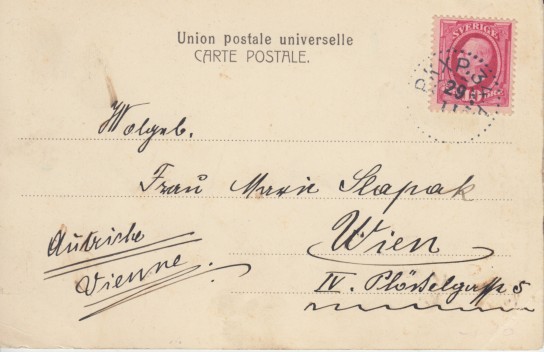 Union postale universelle
CARTE POSTALE.
SVERIGE
PKXP. 3
29
Wolgeb.
Frau Marie Slapak
Wien
IV. Plösslgasse 5
Autriche
Vienne.